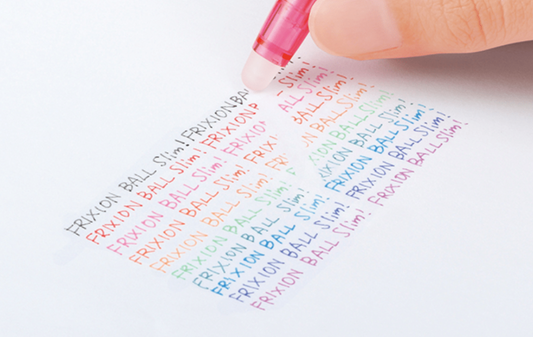 FRIXION BALL Slim! FRIXION BA
FRIXION BALL Slim! FRIXION B Slim!
FRIXION BALL Slim! FRIXION ALL Slim!
FRIXION BALL Slim! FRIX BALL Slim!
FRIXION BALL Slim! BALL Slim!
FRIXION BALL Slim! XION BALL Slim!
FRIXION BALL Slim! FRIXION BALL Slim!
FRIXION BALL Slim! FRIXION BALL Slim!
FRIXION BALL Slim! FRIXION BALL Slim!
FRIXION BALL Slim! FRIXION BALL Slim!